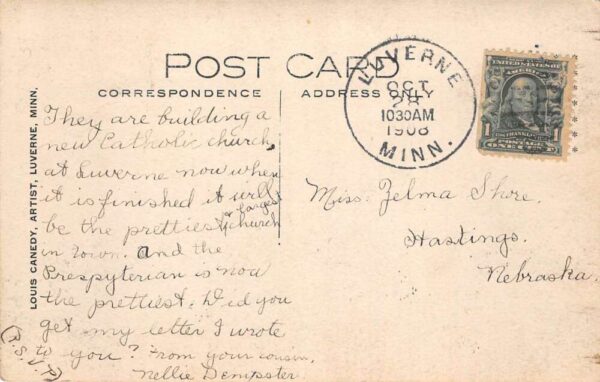 POST CARD
CORRESPONDENCE
ADDRESS ONLY
LUVERNE
OCT
28
1030AM
1908
MINN.
UNITED STATES OF
AMERICA
1 1
POSTAGE
ONE CENT
LOUIS CANEDY, ARTIST, LUVERNE, MINN.
They are building a
new Catholic church,
at Luverne now when
it is finished it will
be the prettiest & largest church
in town. and the
Prespyterian is now
the prettiest. Did you
get my letter I wrote
to you? From your cousin,
Nellie Dempster.
Miss. Zelma Shire.
Hastings.
Nebraska.